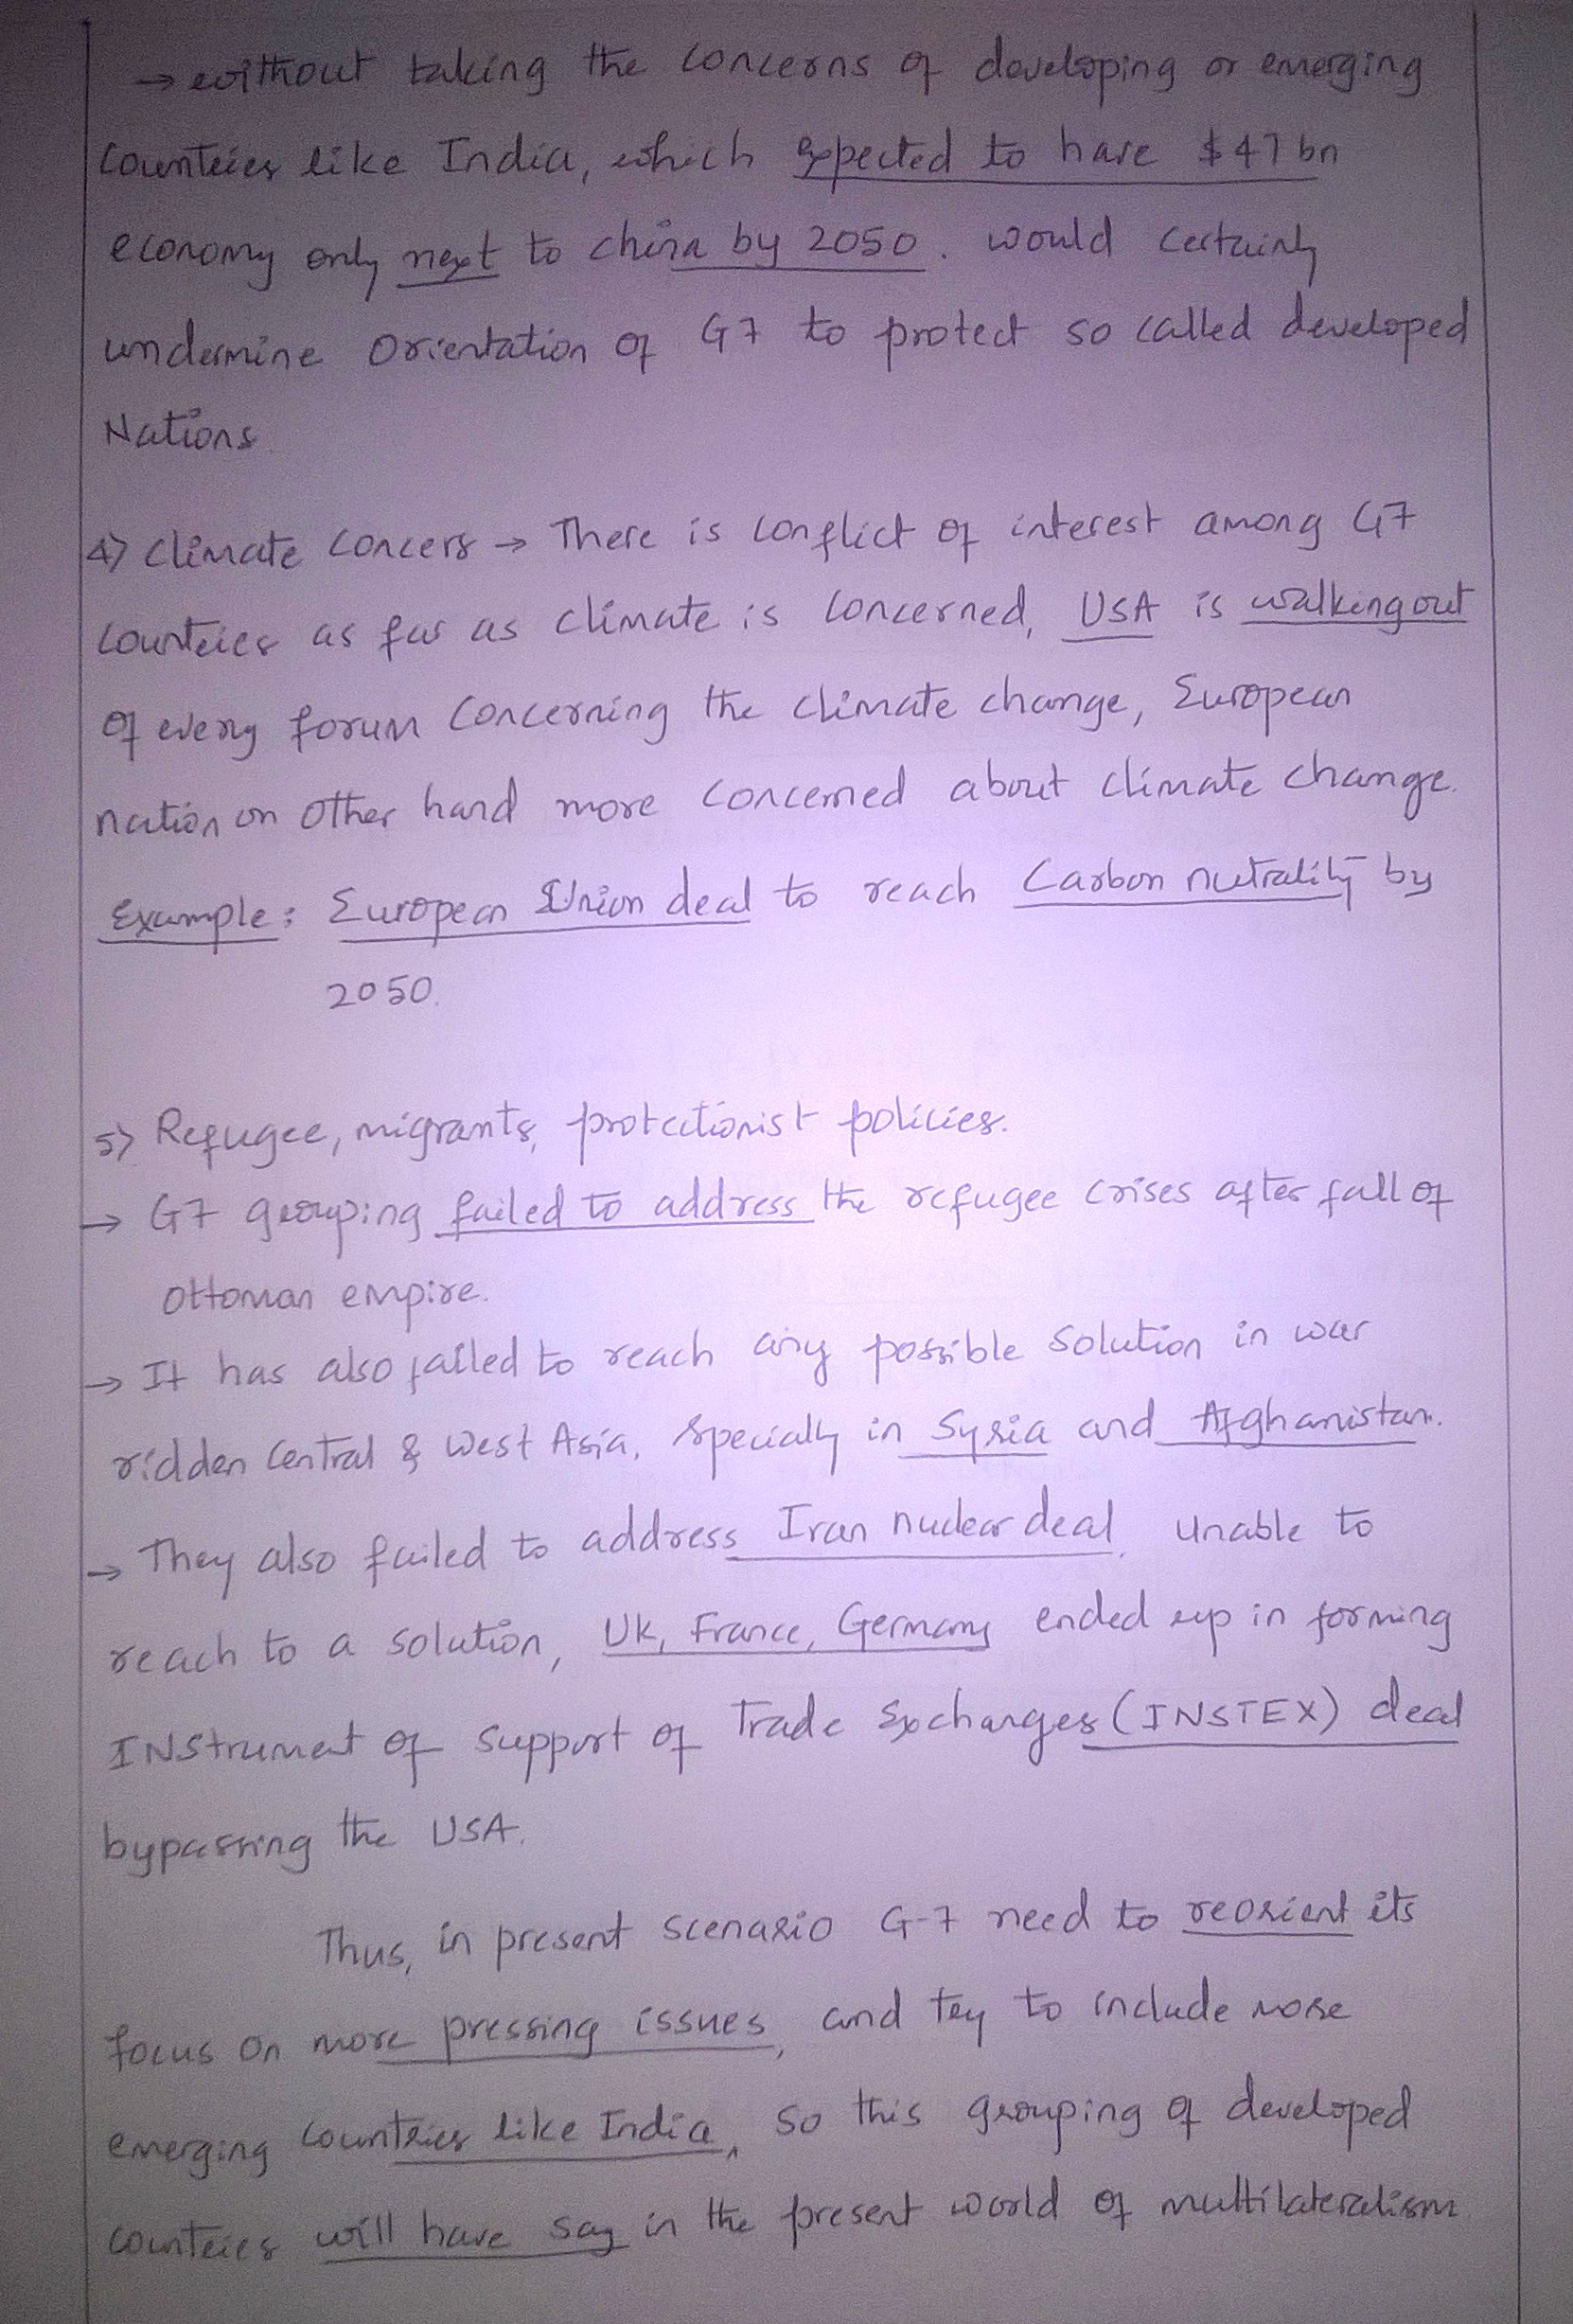 → without taking the concerns of developing or emerging
countries like India, which expected to have $47 bn
economy only next to china by 2050. would certainly
undermine orientation of G7 to protect so called developed
Nations.
4) Climate concers → There is conflict of interest among G7
countries as far as climate is concerned, USA is walking out
of every forum concerning the climate change, European
nation on other hand more concerned about climate change.
Example: European Union deal to reach Carbon nutrality by
2050.
5) Refugee, migrants, protectionist policies.
→ G7 grouping failed to address the refugee crises after fall of
Ottoman empire.
→ It has also failed to reach any possible solution in war
ridden Central & West Asia, specially in Syria and Afghanistan.
→ They also failed to address Iran nuclear deal, unable to
reach to a solution, UK, France, Germany ended up in forming
INStrument of Support of Trade Exchanges (INSTEX) deal
bypassing the USA.
Thus, in present scenario G-7 need to reorient its
focus on more pressing issues, and try to include more
emerging countries like India, so this grouping of developed
countries will have say in the present world of multilateralism.